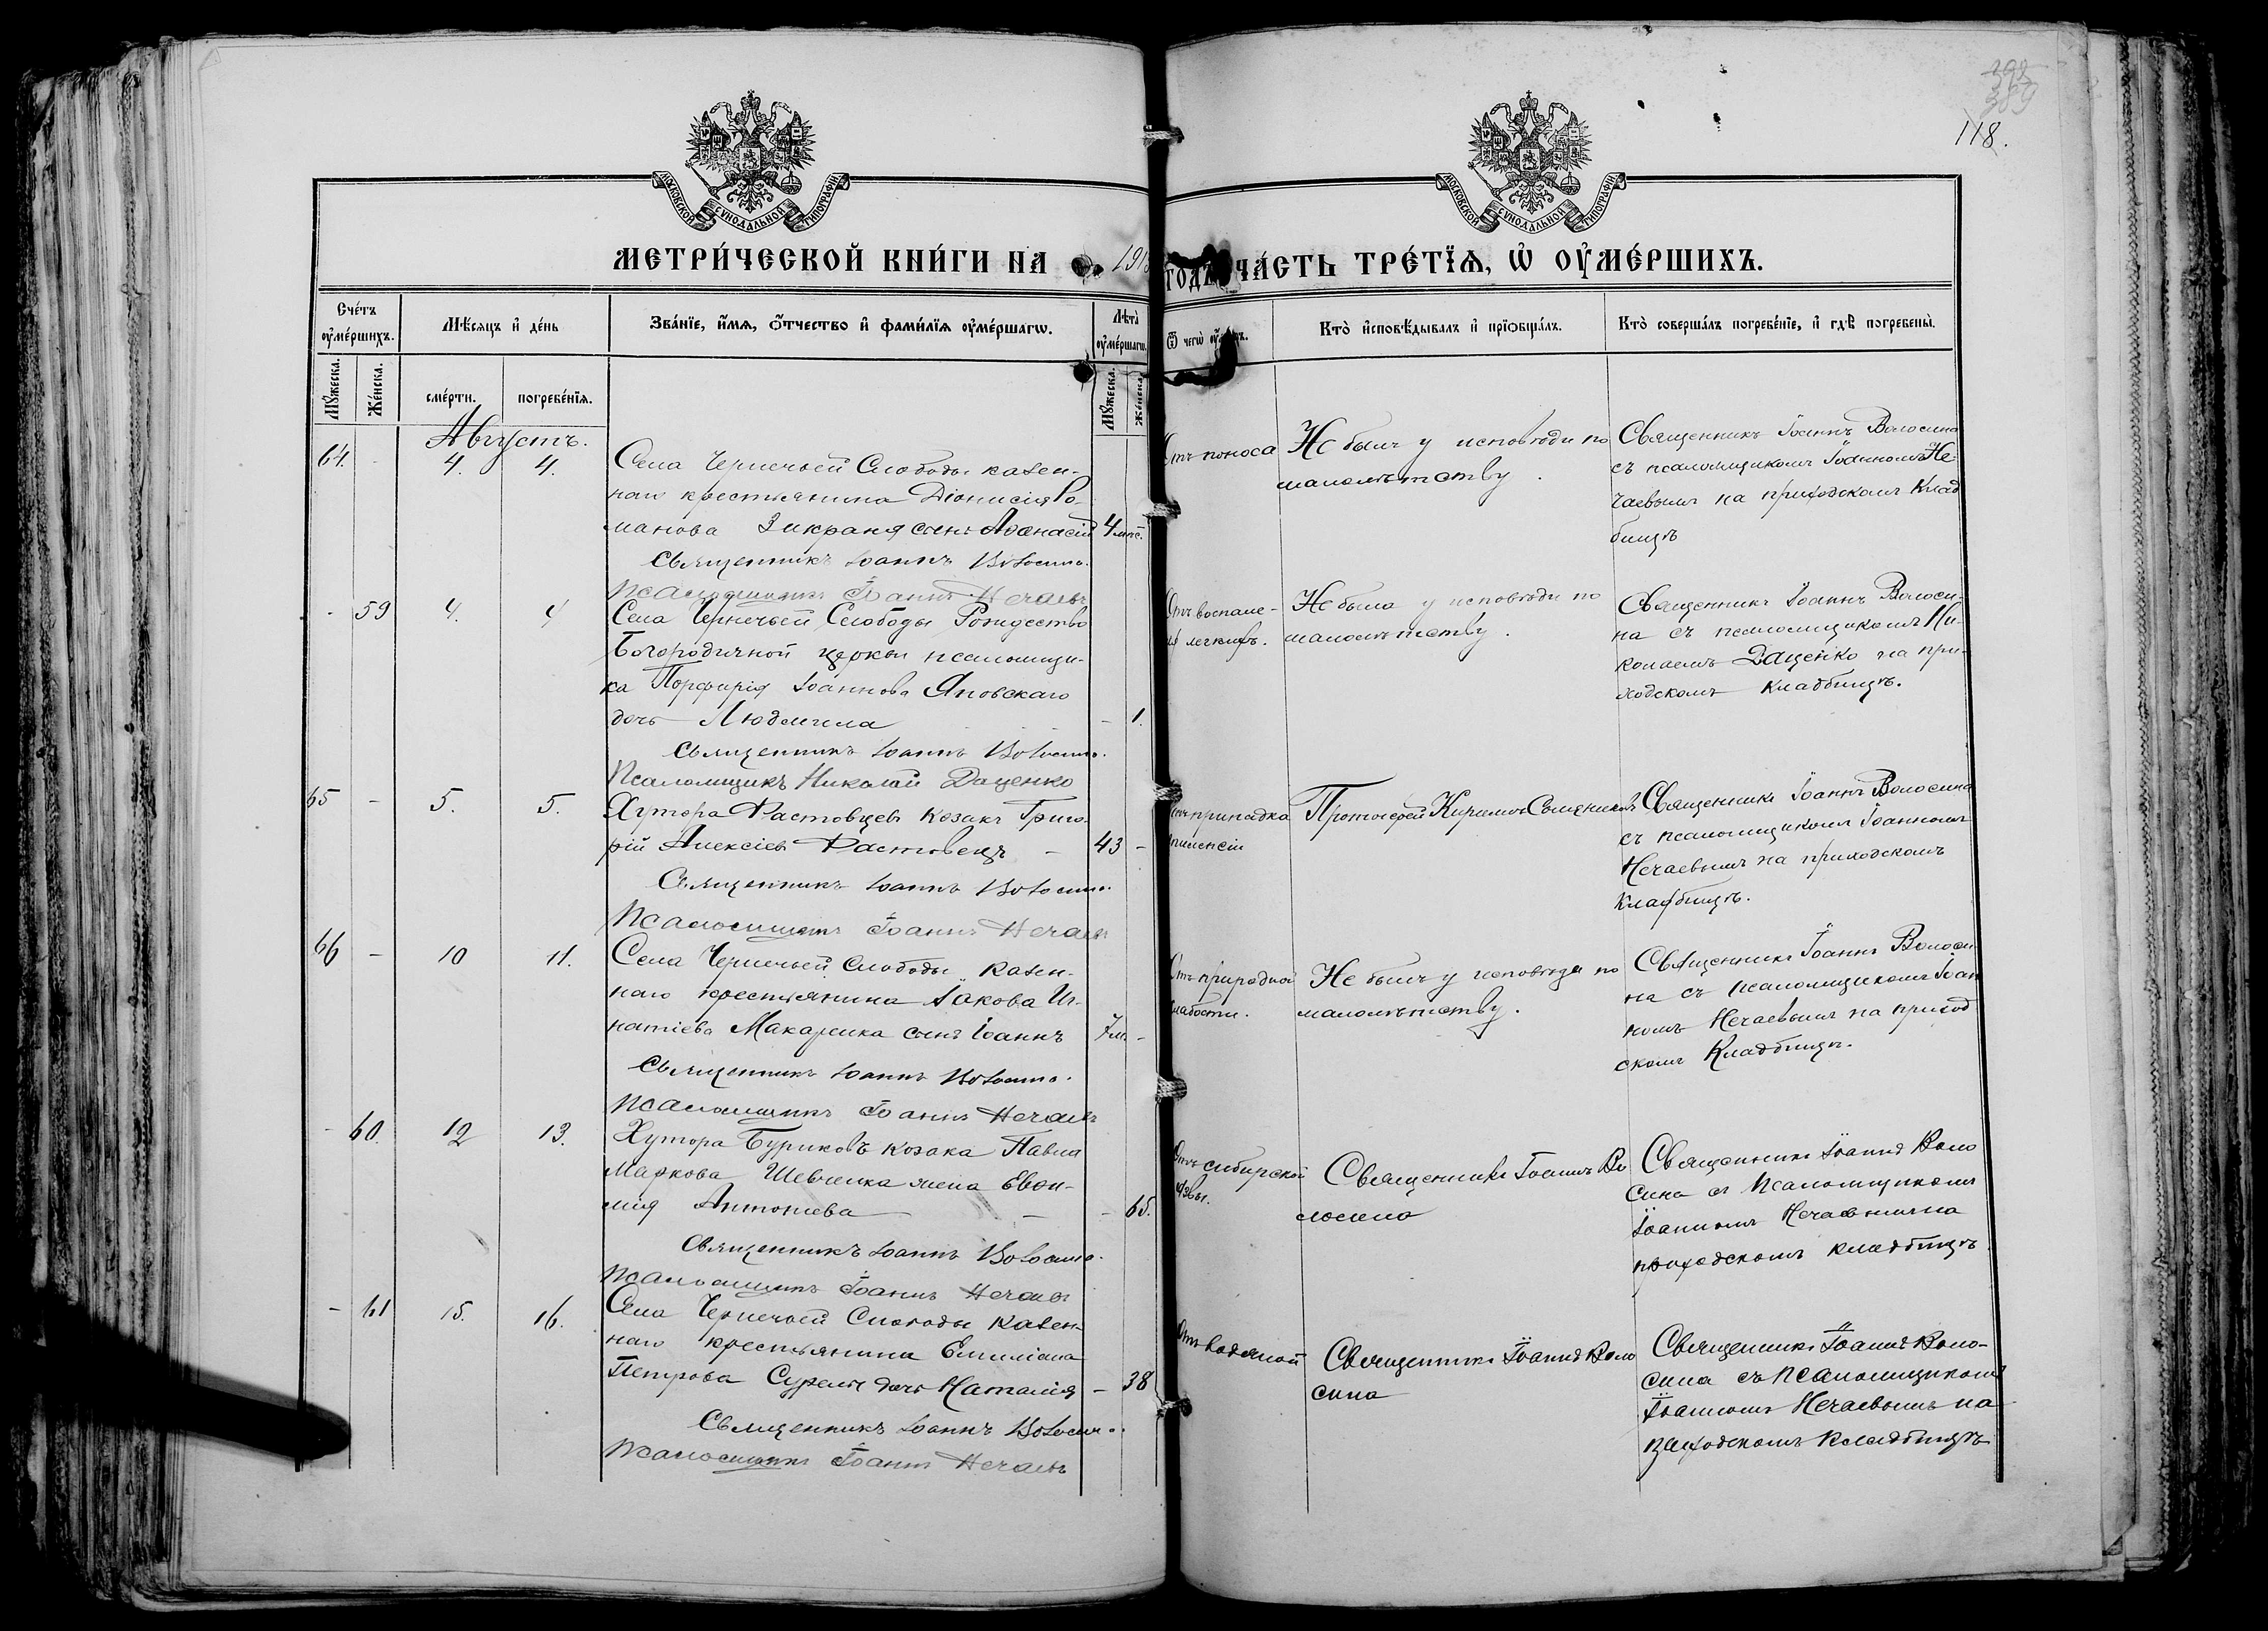 392
389
118.
МОСКОВСКОЙ СѴНОДАЛЬНОЙ ТИПОГРАФІИ
МОСКОВСКОЙ СѴНОДАЛЬНОЙ ТИПОГРАФІИ
МЕТРИ́ЧЕСКОЙ КНИ́ГИ НА 191
ГОДЪ ЧА́СТЬ ТРЕ́ТЇѦ, Ѡ ОУМЕ́РШИХЪ.
Сче́тъ оуме́ршихъ.
Мѣ́сяцъ и де́нь
Зва́нїе, и́мѧ, ѻ́тчество и фами́лїѧ оуме́ршагѡ.
Лѣта̀ оуме́ршагѡ.
Ѿ чегѡ̀ оу
Кто̀ и҆сповѣ́дывалъ и҆ прїѡбща́лъ.
Кто̀ соверша́лъ погребе́нїе, и҆ гдѣ̀ погребены̀.
Мꙋ́жеска. Же́нска.
сме́рти. погребе́нїѧ.
Мꙋ́жеска. Же́нска.
Августъ.
64. - 4. 4.
Села Чернечьей Слободы казен-
наго крестьянина Діонисія Ро-
манова Зикраня сынъ Аѳанасій 4 мѣс.
Священникъ Іоаннъ Волосина.
Псаломщикъ Іоаннъ Нечаевъ
Отъ поноса
Не былъ у исповѣди по
малолѣтству.
Священникъ Іоаннъ Волосина
съ псаломщикомъ Іоанномъ Не-
чаевымъ на приходскомъ клад
бищѣ
- 59 4. 4
Села Чернечьей Слободы Рождество
Богородичной церкви псаломщи-
ка Порфирія Іоаннова Яновскаго
дочь Людмила - 1.
Священникъ Іоаннъ Волосина.
Псаломщикъ Николай Даценко
Отъ воспале-
ія легкихъ.
Не была у исповѣди по
малолѣтству.
Священникъ Іоаннъ Волоси-
на съ псаломщикомъ Ни-
колаемъ Даценко на при-
ходскомъ кладбищѣ.
65 - 5. 5.
Хутора Фастовцевъ козакъ Григо-
рій Алексіевъ Фастовецъ - 43 -
Священникъ Іоаннъ Волосина.
Псаломщикъ Іоаннъ Нечаевъ
Отъ припадка
пилепсіи
Протоіерей Кириллъ
Священникъ Іоаннъ Волосина
съ псаломщикомъ Іоанномъ
Нечаевымъ на приходскомъ
кладбищѣ.
66 - 10 11.
Села Чернечьей Слободы казен-
наго крестьянина Іакова Иг-
натіева Макаренка сынъ Іоаннъ 7 м. -
Священникъ Іоаннъ Волосина.
Псаломщикъ Іоаннъ Нечаевъ
Отъ природной
слабости.
Не былъ у исповѣди по
малолѣтству.
Священникъ Іоаннъ Волоси-
на съ псаломщикомъ Іоан
номъ Нечаевымъ на приход
скомъ кладбищѣ.
- 60. 12 13.
Хутора Буриковъ козака Павла
Маркова Шевченка жена Евѳи-
мія Антоніева - - 65.
Священникъ Іоаннъ Волосина.
Псаломщикъ Іоаннъ Нечаевъ
Отъ сибирской
язвы.
Священникъ Іоаннъ Во
лосина
Священникъ Іоаннъ Воло
сина съ псаломщикомъ
Іоанномъ Нечаевымъ на
приходскомъ кладбищѣ
- 61 15. 16.
Села Чернечьей Слободы казен-
наго крестьянина Емиліана
Петрова дочь Наталія - 38
Священникъ Іоаннъ Волосина.
Псаломщикъ Іоаннъ Нечаевъ
Отъ водяной
Священникъ Іоаннъ Воло
сина
Священникъ Іоаннъ Воло-
сина съ псаломщикомъ
Іоанномъ Нечаевымъ на
приходскомъ кладбищѣ